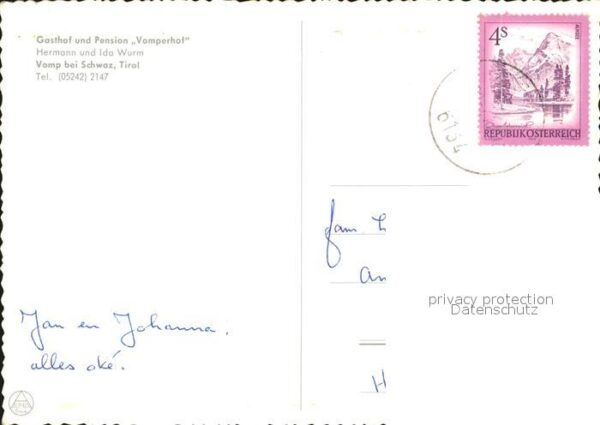 Gasthof und Pension „Vomperhof"
Hermann und Ida Wurm
Vomp bei Schwaz, Tirol
Tel. (05242) 2147
4S
ALMSEE
REPUBLIK ÖSTERREICH
6134
fam
An
H
privacy protection
Datenschutz
Jan en Johanna,
alles oké.